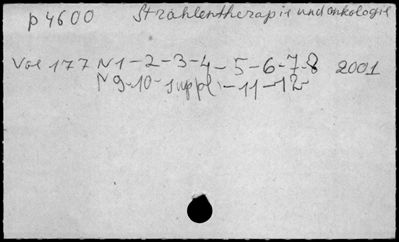 p 4600 Strahlentherapie und onkologie
Vol 177 N1-2-3-4-5-6-7-8 2001
N9-10-suppl-11-12